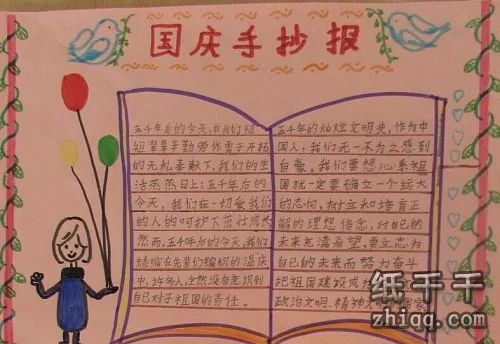 国庆手抄报
五千年后的今天,在我们祖
祖辈辈辛勤劳作勇于开拓
的无私奉献下,我们的生
活蒸蒸日上;五千年后的
今天,我们在一切爱我们
的人的呵护下茁壮成长
然而,五千年后的今天,我们
蜷缩在先辈们编织的温床
中,全然没有意识到
自己对于祖国的责任。
五千年的灿烂文明史,作为中
国人;我们无一不为之感到
自豪。我们要想心系祖
国就一定要确立一个远大
的志向,树立和培育正
解的理想信念,对自己的
未来充满希望,要立志为
自己的未来而努力奋斗
把祖国建设成为
政治文明、精神
纸千千
zhiqq.com